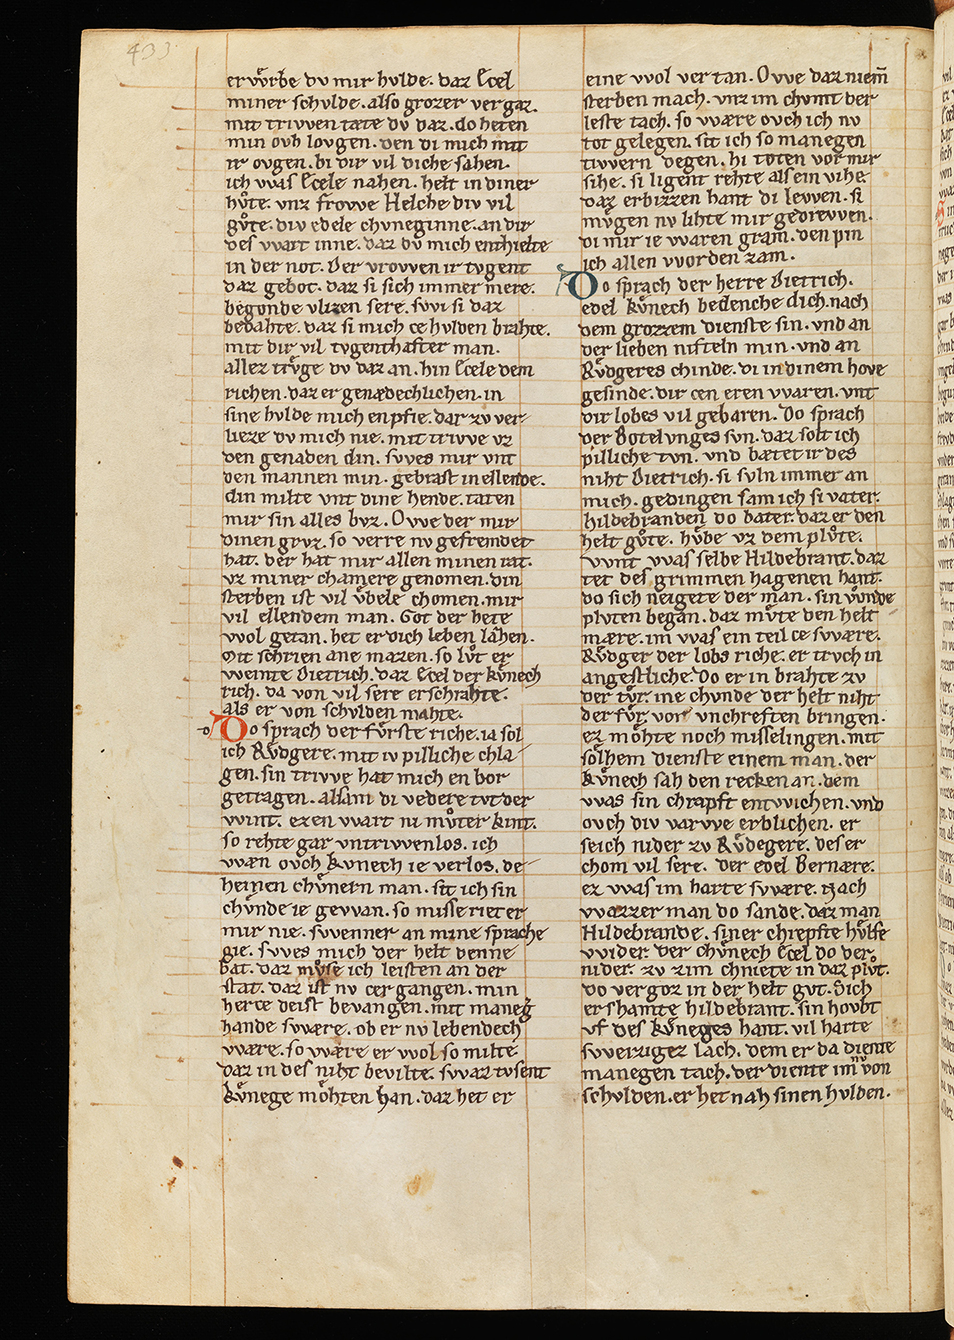 433
erwͤrbe dv mir hvlde. daz Ecel
miner schvlde. also grozer vergaz.
mit trivven tæte dv daz. do heten
min ovh lovgen. den di mich mit
ir ovgen. bi dir vil diche sahen.
ich vvas Ecele nahen. helt in diner
hvͦte. vnz frovve Helche div vil
gvͦte. div edele chvneginne. an dir
des vvart inne. daz dv mich enthielte
in der not. Der vrovven ir tvgent
daz gebot. daz si sich immer mere.
begonde vlizen sere. svvi si daz
bedahte. daz si mich ce hvlden brahte.
mit dir vil tvgenthafter man.
allez trvͤge dv daz an. hin Ecele dem
richen. daz er genædechlichen. in
sine hvlde mich enpfie. dar zv ver-
lieze dv mich nie. mit trivve vz
den genaden din. svves mir vnt
den mannen min. gebrast in ellende.
din milte vnt dine hende. taten
mir sin alles bvz. Ovve der mir
dinen grvz. so verre nv gefremdet
hat. der hat mir allen minen rat.
vz miner chamere genomen. din
sterben ist vil vͤbele chomen. mir
vil ellendem man. Got der hete
vvol getan. het er dich leben lâhen.
Mit schrien ane mazen. so lvͦt er
vveinte Dietrich. daz Ecel der kvͤnech
rich. da von vil sere erschrahte.
als er von schvlden mahte.
Do sprach der fvͤrste riche. ia sol
ich Rvͤdgere. mit iv pilliche chla-
gen. sin trivve hat mich en bor
getragen. alsam di vedere tvt der
vvint. ezen vvart ni mvͦter kint.
so rehte gar vntrivvenlos. ich
vvæn ovch kvnech ie verlos. de-
heinen chvͤnern man. sit ich sin
chvͤnde ie gevvan. so misse riet er
mir nie. svvenner an mine sprache
gie. svves mich der helt denne
bat. daz mvͦse ich leisten an der
stat. daz ist nv cergangen. min
herce deist bevangen. mit maneger
hande svvære. ob er nv lebendech
vvære. so vvære er vvol so milte.
daz in des niht bevilte. svvaz tvsent
kvͤnege mohten han. daz het er
eine vvol vertan. Ovve daz niem̄
sterben mach. vnz im chvmt der
leste tach. so vvære ovch ich nv
tot gelegen. sit ich so manegen
tivvern degen. hi toten vor mir
sihe. si ligent rehte als ein vihe
daz erbizzen hant di levven. si
mvͤgen nv lihte mir gedrevven.
di mir ie vvaren gram. den pin
ich allen vvorden zam.
Do sprach der herre Dietrich.
edel kvͤnech bedenche dich. nach
dem grozzem dienste sin. vnd an
der lieben nifteln min. vnd an
Rvͤdgeres chinde. di in dinem hove
gesinde. dir cen eren vvaren. vnt
dir lobes vil gebaren. Do sprach
der Botelvnges svn. daz solt ich
pilliche tvn. vnd bætet ir des
niht Dietrich. si svln immer an
mich. gedingen sam ich si vater.
hildebranden do bater. daz er den
helt gvͦte. hvͤbe vz dem plvͦte.
vvnt vvas selbe Hildebrant. daz
tet des grimmen hagenen hant.
do sich neigete der man. sin vvͦnde
plvten began. daz mvͤte den helt
mære. im vvas ein teil ce svvære.
Rvͤdger der lobs riche. er trvch in
angestliche. Do er in brahte zv
der tvͤr. ine chvnde der helt niht
der fvͤr. vor vnchreften bringen.
ez mohte noch misselingen. mit
solhem dienste einem man. der
kvͤnech sah den recken an. dem
vvas sin chrapft entvvichen. vnd
ovch div varvve erblichen. er
seich nider zv Rvͤdegere. des er
chom vil sere. der edel Bernære.
ez vvas im harte svvære. Nach
vvazzer man do sande. daz man
Hildebrande. siner chrepfte hvͤlfe
vvider. der chvͤnech Ecel do der
nider. zv zim chniete in daz plvͦt.
do vergoz in der helt gvt. Sich
ershamte hildebrant. sin hovbt
vf des kvͤneges hant. vil harte
svveiziger lach. dem er da diente
manegen tach. der diente im nv von
schvlden. er het nah sinen hvlden.